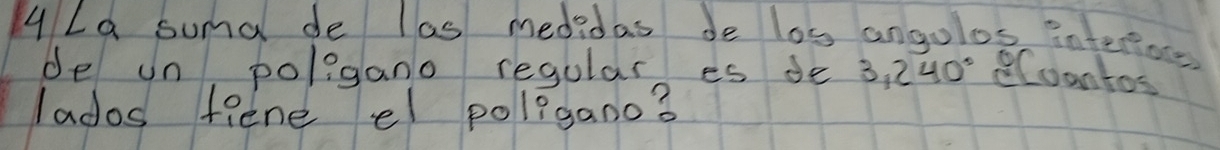 4 La suma de las medidas de los angulos interiores
de un poligano regular es de 3,240° ¿Cuantos
lados tiene el poligano?